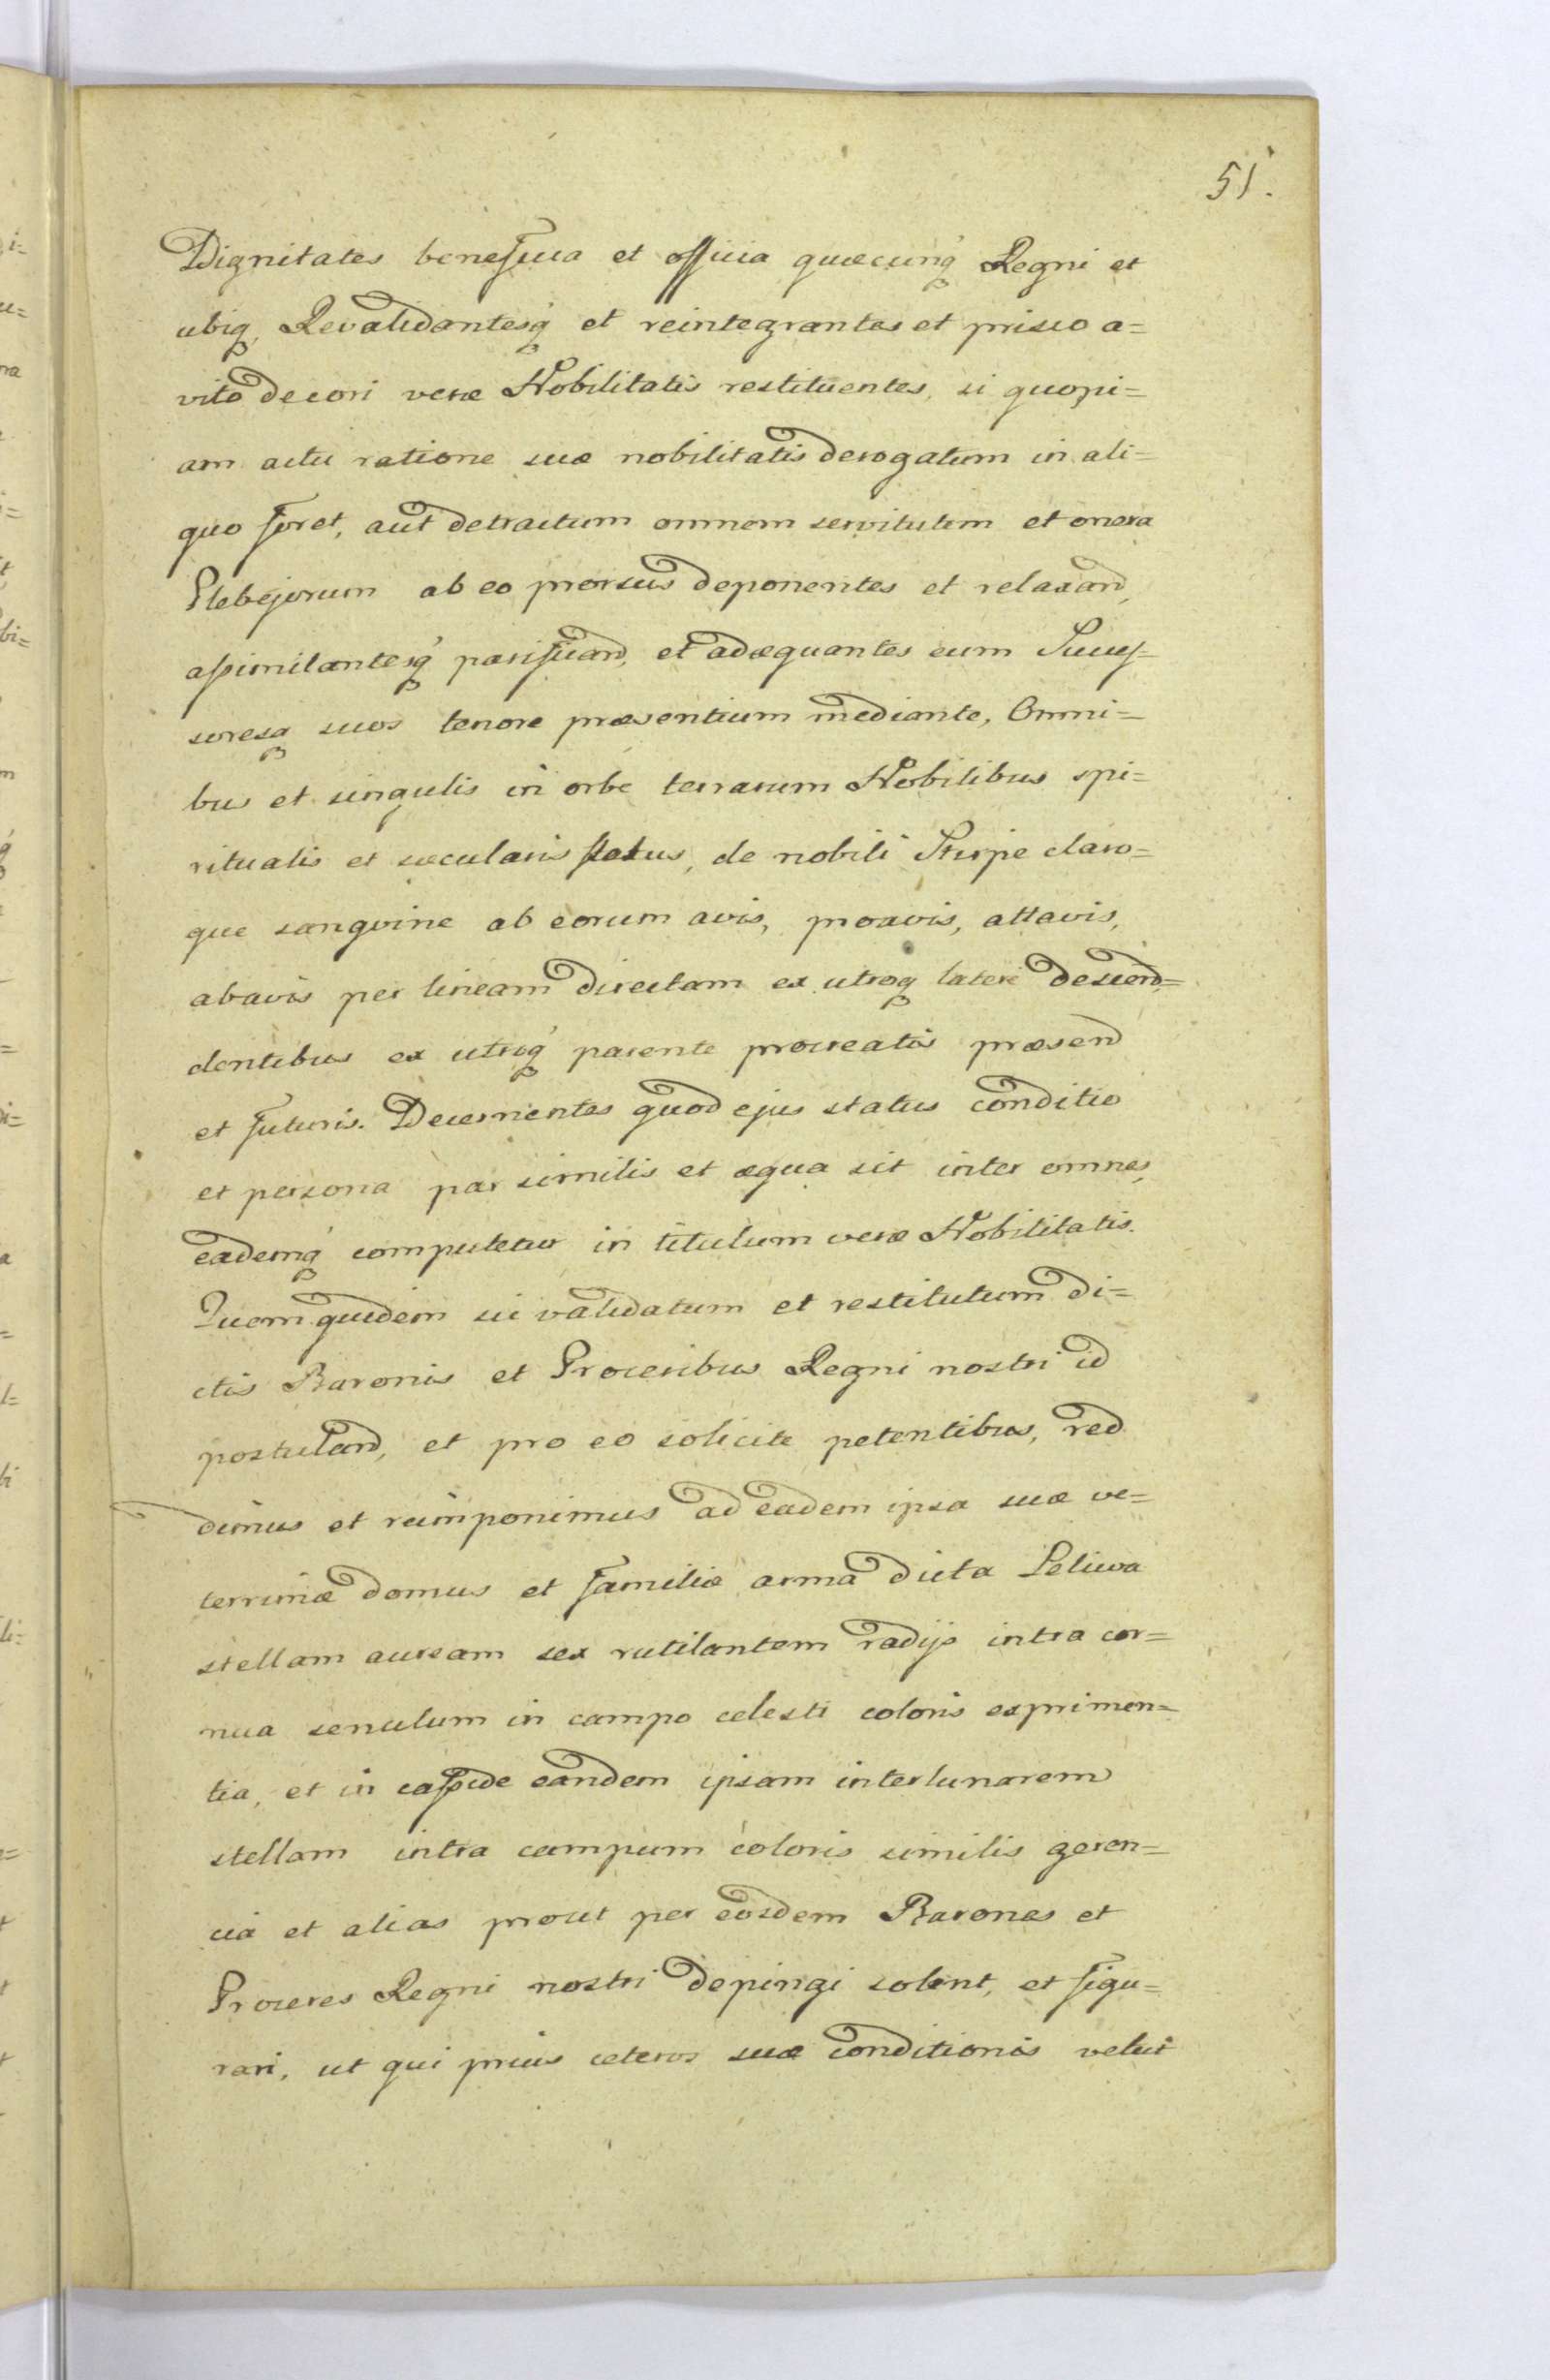 51.
Dignitates beneficia et officia quæcunq́ Regni et
ubiq, Revalidantesq́ et reintegrantes et prisco a=
vito decori veræ Nobilitatis restituentes, si quopi=
am actu ratione suæ nobilitatis derogatum in ali=
quo foret, aut detractum omnem servitutem et onera
Plebejorum ab eo prorsus deponentes et relaxand,
assimilantesq́ parificand, et adæquantes eum Succes=
soresq suos tenore præsentium mediante, Omni=
bus et singulis in orbe terrarum Nobilibus spi=
ritualis et sæcularis status, de nobili Stirpe claro=
que sangvine ab eorum avis, proavis, attavis,
abavis per lineam directam ex utroq latere descend=
dentibus ex utroq́ parente procreatis præsend
et futuris. Decernentes quod ejus status conditio
et persona par similis et æqua sit inter omnes,
eademq́ computetur in titulum veræ Nobilitatis.
Quem quidem sic validatum et restitutum di=
ctis Baronis et Proceribus Regni nostri id
postuland, et pro eo solicite petentibus, red
dimus et reimponimus ad eadem ipsa suæ ve=
terrimæ domus et familiæ arma dicta Leliwa
stellam auream sex rutilantem radijs intra cor=
nua senulum in campo celesti coloris exprimen=
tia, et in casside eandem ipsam interlunarem
stellam intra campum coloris similis geren=
cia et alias prout per eosdem Barones et
Proceres Regni nostri depingi solent, et figu=
rari, ut qui prius ceteros suæ conditionis velut